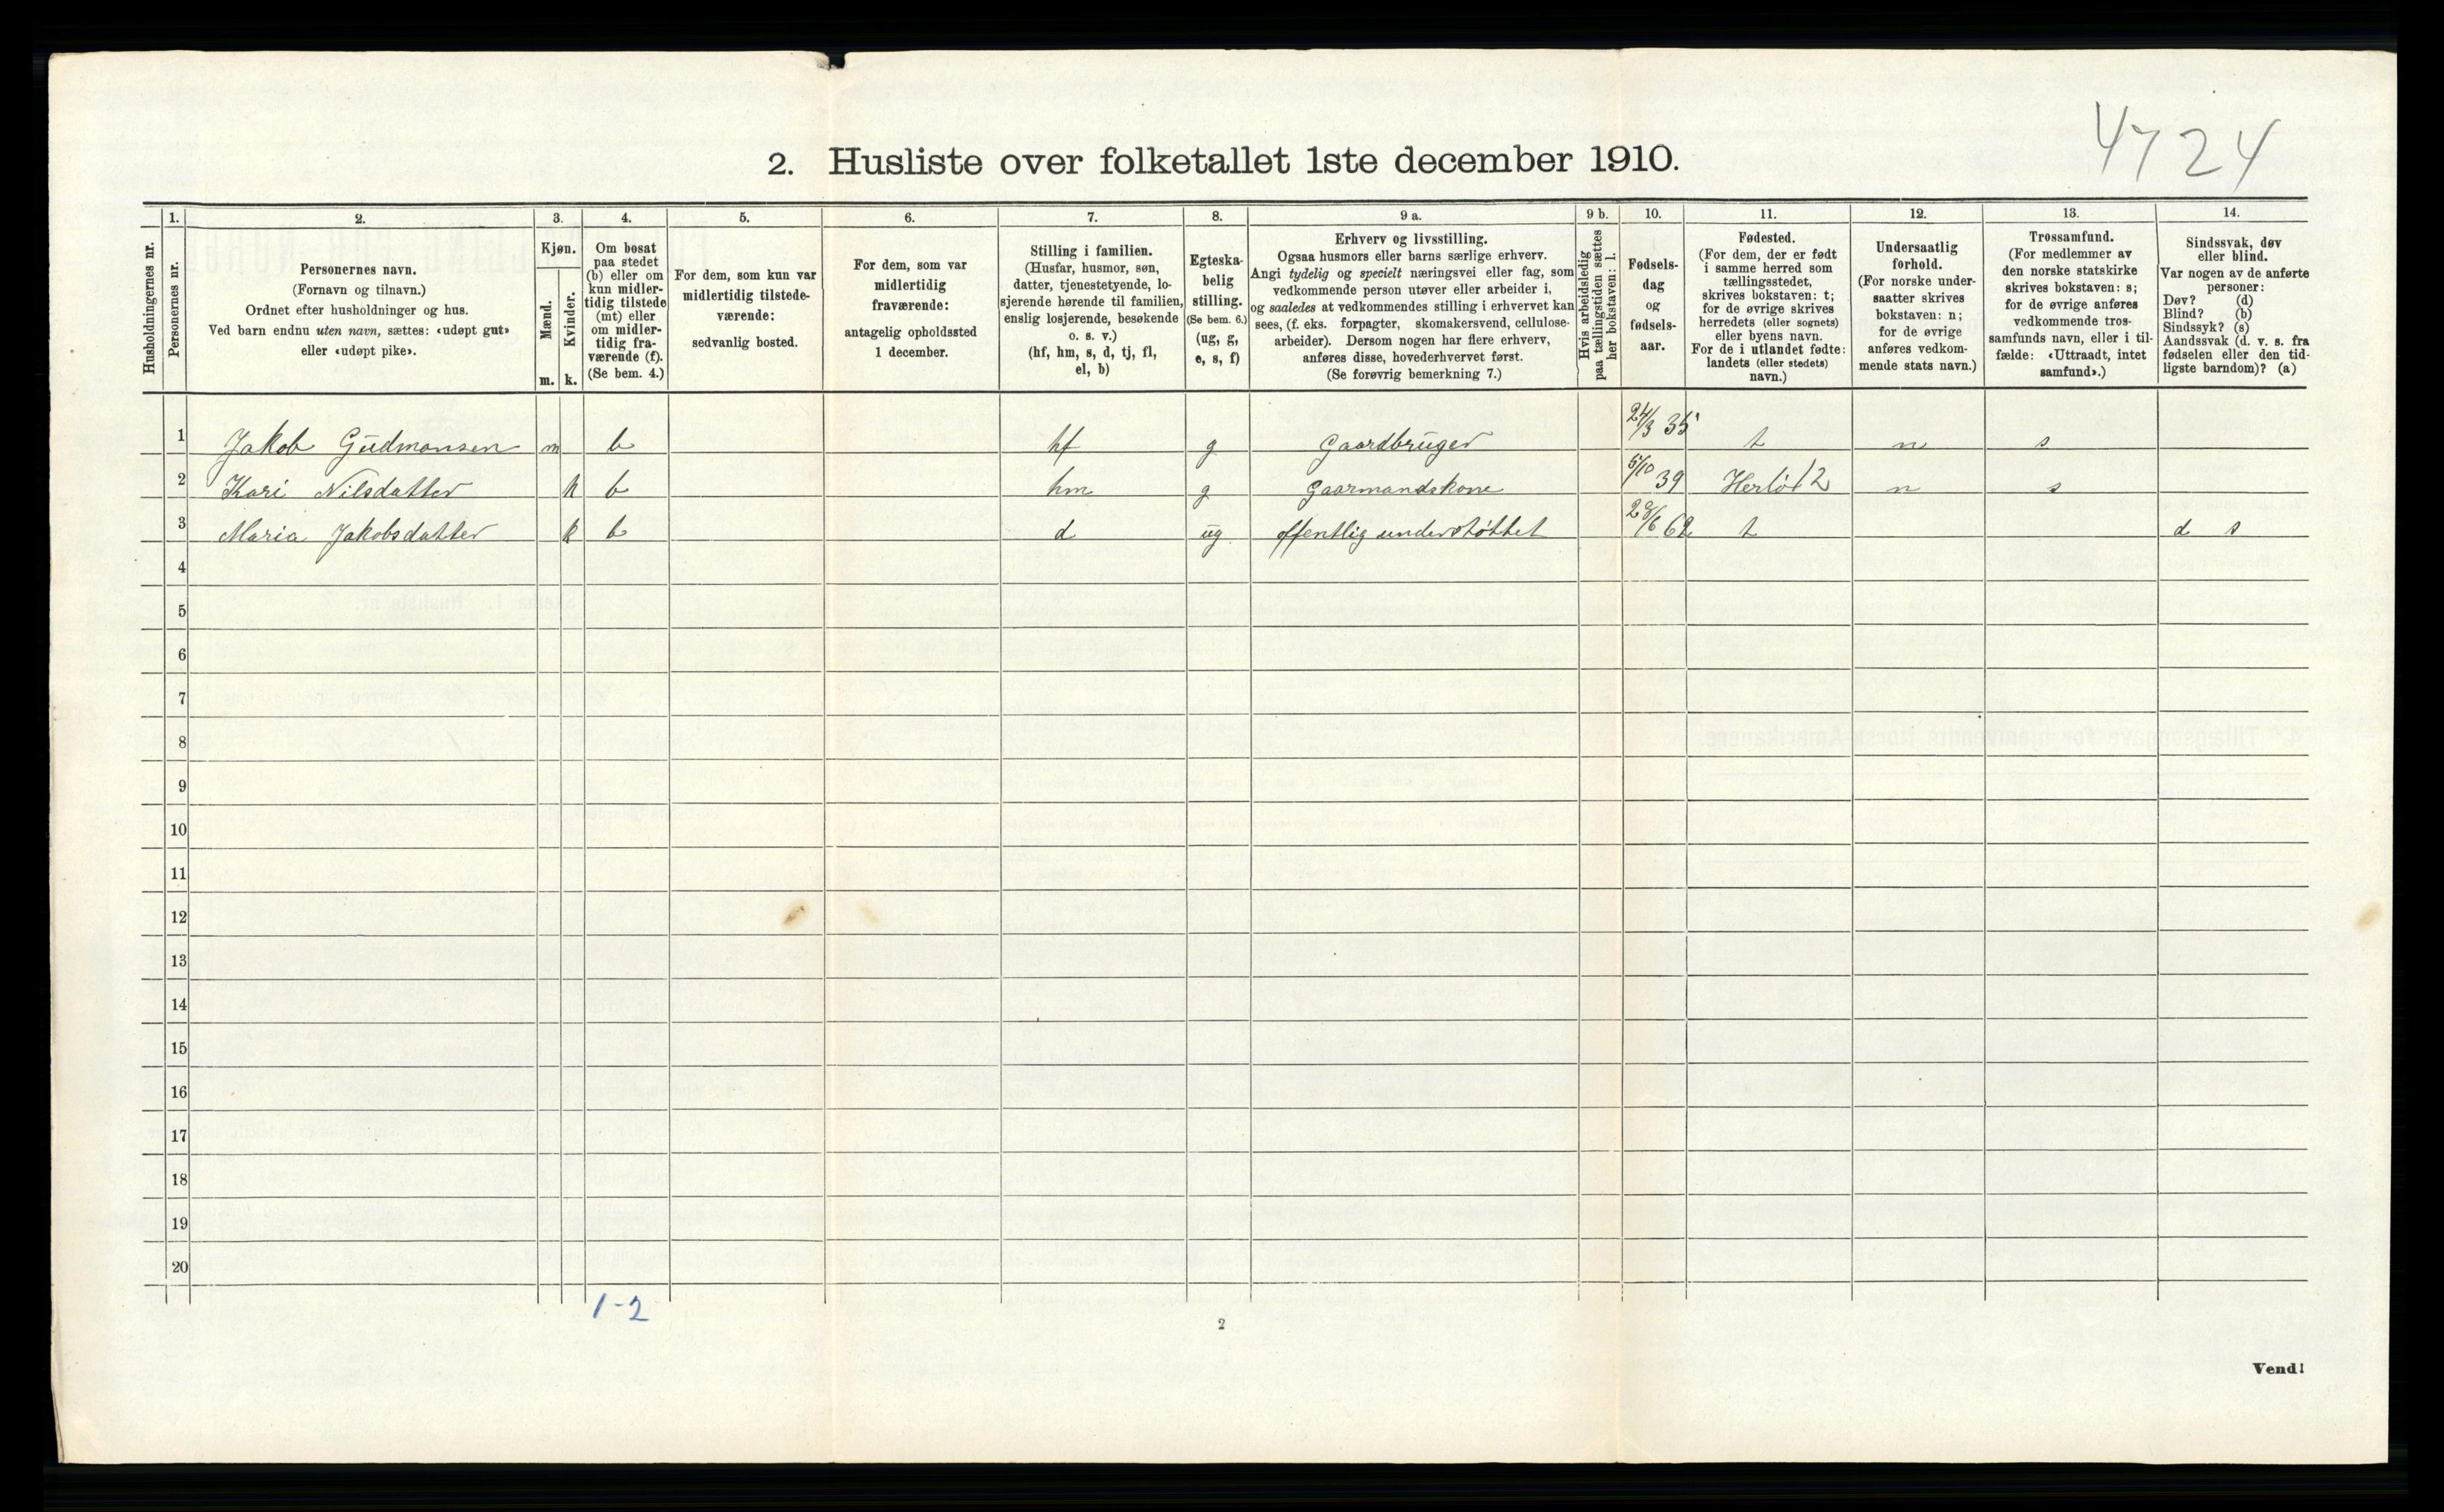 4724
2. Husliste over folketallet 1ste december 1910.
Husholdningernes nr.
1.
Personernes nr.
2.
Personernes navn.
(Fornavn og tilnavn.)
Ordnet efter husholdninger og hus.
Ved barn endnu uten navn, sættes: «udøpt gut»
eller «udøpt pike».
3.
Kjøn.
Mænd.
Kvinder.
m. k.
4.
Om bosat
paa stedet
(b) eller om
kun midler-
tidig tilstede
(mt) eller
om midler-
tidig fra-
værende (f).
(Se bem. 4.)
5.
For dem, som kun var
midlertidig tilstede-
værende:
sedvanlig bosted.
6.
For dem, som var
midlertidig
fraværende:
antagelig opholdssted
1 december.
7.
Stilling i familien.
(Husfar, husmor, søn,
datter, tjenestetyende, lo-
sjerende hørende til familien,
enslig losjerende, besøkende
o. s. v.)
(hf, hm, s, d, tj, fl,
el, b)
8.
Egteska-
belig
stilling.
(Se bem. 6.)
(ug, g,
e, s, f)
9 a.
Erhverv og livsstilling.
Ogsaa husmors eller barns særlige erhverv.
Angi tydelig og specielt næringsvei eller fag, som
vedkommende person utøver eller arbeider i,
og saaledes at vedkommendes stilling i erhvervet kan
sees, (f. eks. forpagter, skomakersvend, cellulose-
arbeider). Dersom nogen har flere erhverv,
anføres disse, hovederhvervet først.
(Se forøvrig bemerkning 7.)
9 b.
Hvis arbeidsledig
paa tællingstiden sættes
her bokstaven: l.
10.
Fødsels-
dag
og
fødsels-
aar.
11.
Fødested.
(For dem, der er født
i samme herred som
tællingsstedet,
skrives bokstaven: t;
for de øvrige skrives
herredets (eller sognets)
eller byens navn.
For de i utlandet fødte:
landets (eller stedets)
navn.)
12.
Undersaatlig
forhold.
(For norske under-
saatter skrives
bokstaven: n;
for de øvrige
anføres vedkom-
mende stats navn.)
13.
Trossamfund.
(For medlemmer av
den norske statskirke
skrives bokstaven: s;
for de øvrige anføres
vedkommende tros-
samfunds navn, eller i til-
fælde: «Uttraadt, intet
samfund».)
14.
Sindssvak, døv
eller blind.
Var nogen av de anførte
personer:
Døv? (d)
Blind? (b)
Sindssyk? (s)
Aandssvak (d. v. s. fra
fødselen eller den tid-
ligste barndom)? (a)
1 Jakob Gudmonsen m b hf g Gaardbruger 24/3 35 t n s
2 Kari Nilsdatter k b hm g Gaarmandskone 5/10 39 Herlø 12 n s
3 Maria Jakobsdatter k b d ug offentlig understøttet 28/6 62 t d s
4
5
6
7
8
9
10
11
12
13
14
15
16
17
18
19
20
1-2
2
Vend!